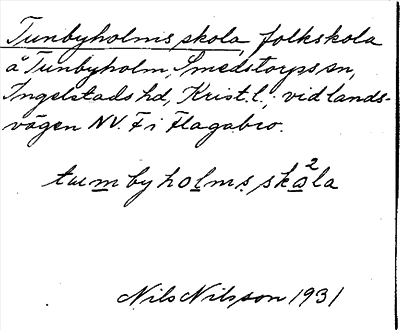 Tunbyholms skola, folkskola
å Tunbyholm, Smedstorps sn,
Ingelstads hd, Krist. l., vid lands-
vägen NV. F i Flagabro.
tumbyholms skola
2
Nils Nilsson 1931